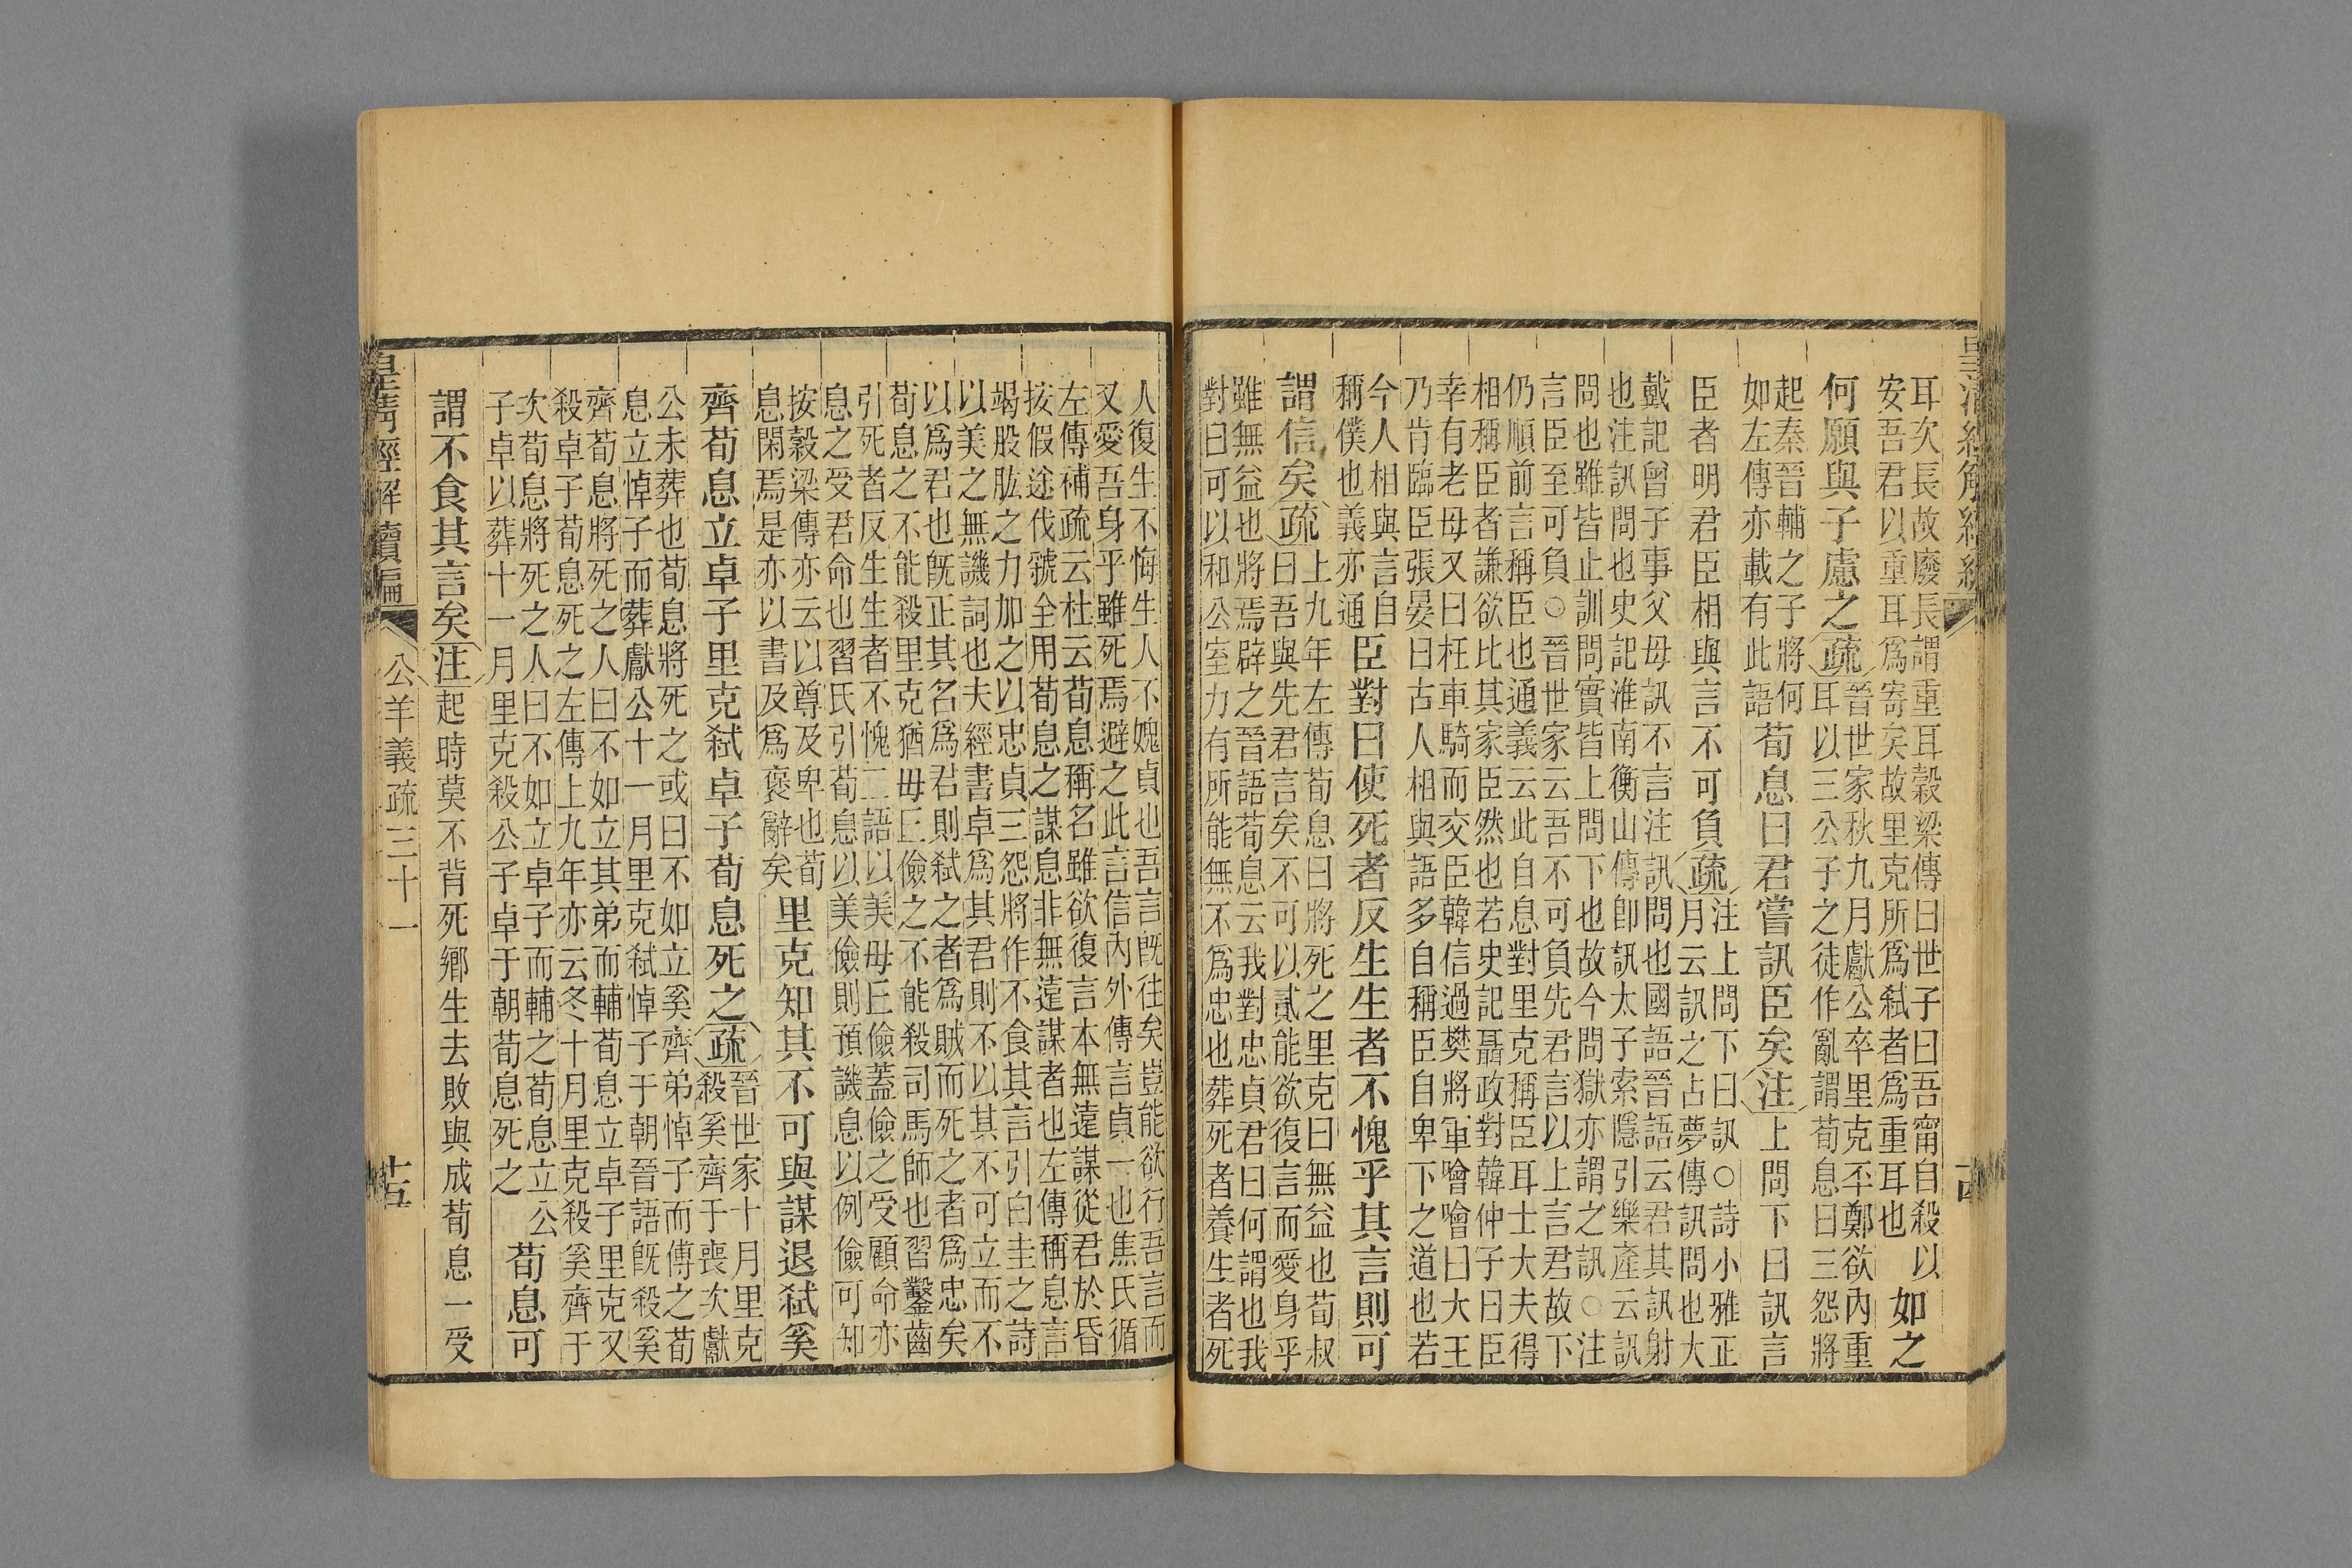 耳次長故廢長謂重耳穀梁傳曰世子曰吾甯自殺以
安吾君以重耳爲寄矣故里克所爲弑者爲重耳也
如之
何願與子慮之
疏
晉世家秋九月獻公卒里克丕鄭欲內重
耳以三公子之徒作亂謂荀息曰三怨將
起秦晉輔之子將何
如左傳亦載有此語
荀息曰君嘗訊臣矣
注
上問下曰訊言
臣者明君臣相與言不可負
疏
注上問下曰訊○詩小雅正
月云訊之占夢傳訊問也大
戴記曾子事父母訊不言注訊問也國語晉語云君其訊射
也注訊問也史記淮南衡山傳卽訊太子索隱引樂產云訊
問也雖皆止訓問實皆上問下也故今問獄亦謂之訊○注
言臣至可負○晉世家云吾不可負先君言以上言君故下
仍順前言稱臣也通義云此自息對里克稱臣耳士大夫得
相稱臣者謙欲比其家臣然也若史記聶政對韓仲子曰臣
幸有老母又曰枉車騎而交臣韓信過樊將軍噲噲曰大王
乃肯臨臣張晏曰古人相與語多自稱臣自卑下之道也若
今人相與言自
稱僕也義亦通
臣對曰使死者反生生者不愧乎其言則可
謂信矣
疏
上九年左傳荀息曰將死之里克曰無益也荀叔
曰吾與先君言矣不可以貳能欲復言而愛身乎
雖無益也將焉辟之晉語荀息云我對忠貞君曰何謂也我
對曰可以和公室力有所能無不爲忠也葬死者養生者死
人復生不悔生人不媿貞也吾言旣往矣豈能欲行吾言而
又愛吾身乎雖死焉避之此言信內外傳言貞一也焦氏循
左傳補疏云杜云荀息稱名雖欲復言本無遠謀從君於昏
按假途伐虢全用荀息之謀息非無遠謀者也左傳稱息言
竭股肱之力加之以忠貞三怨將作不食其言引白圭之詩
以美之無譏詞也夫經書卓爲其君則不以其不可立而不
以爲君也旣正其名爲君則弑之者爲賊而死之者爲忠矣
荀息之不能殺里克猶毋丘儉之不能殺司馬師也習鑿齒
引死者反生生者不愧二語以美毋丘儉蓋儉之受顧命亦
息之受君命也習氏引荀息以美儉則預譏息以例儉可知
按穀梁傳亦云以尊及卑也荀
息閑焉是亦以書及爲褒辭矣
里克知其不可與謀退弑奚
齊荀息立卓子里克弑卓子荀息死之
疏
晉世家十月里克
殺奚齊于喪次獻
公未葬也荀息將死之或曰不如立奚齊弟悼子而傅之荀
息立悼子而葬獻公十一月里克弑悼子于朝晉語旣殺奚
齊荀息將死之人曰不如立其弟而輔荀息立卓子里克又
殺卓子荀息死之左傳上九年亦云冬十月里克殺奚齊于
次荀息將死之人曰不如立卓子而輔之荀息立公
子卓以葬十一月里克殺公子卓于朝荀息死之
荀息可
謂不食其言矣
注
起時莫不背死鄉生去敗與成荀息一受
皇清經解續編
公羊義疏三十一
十五